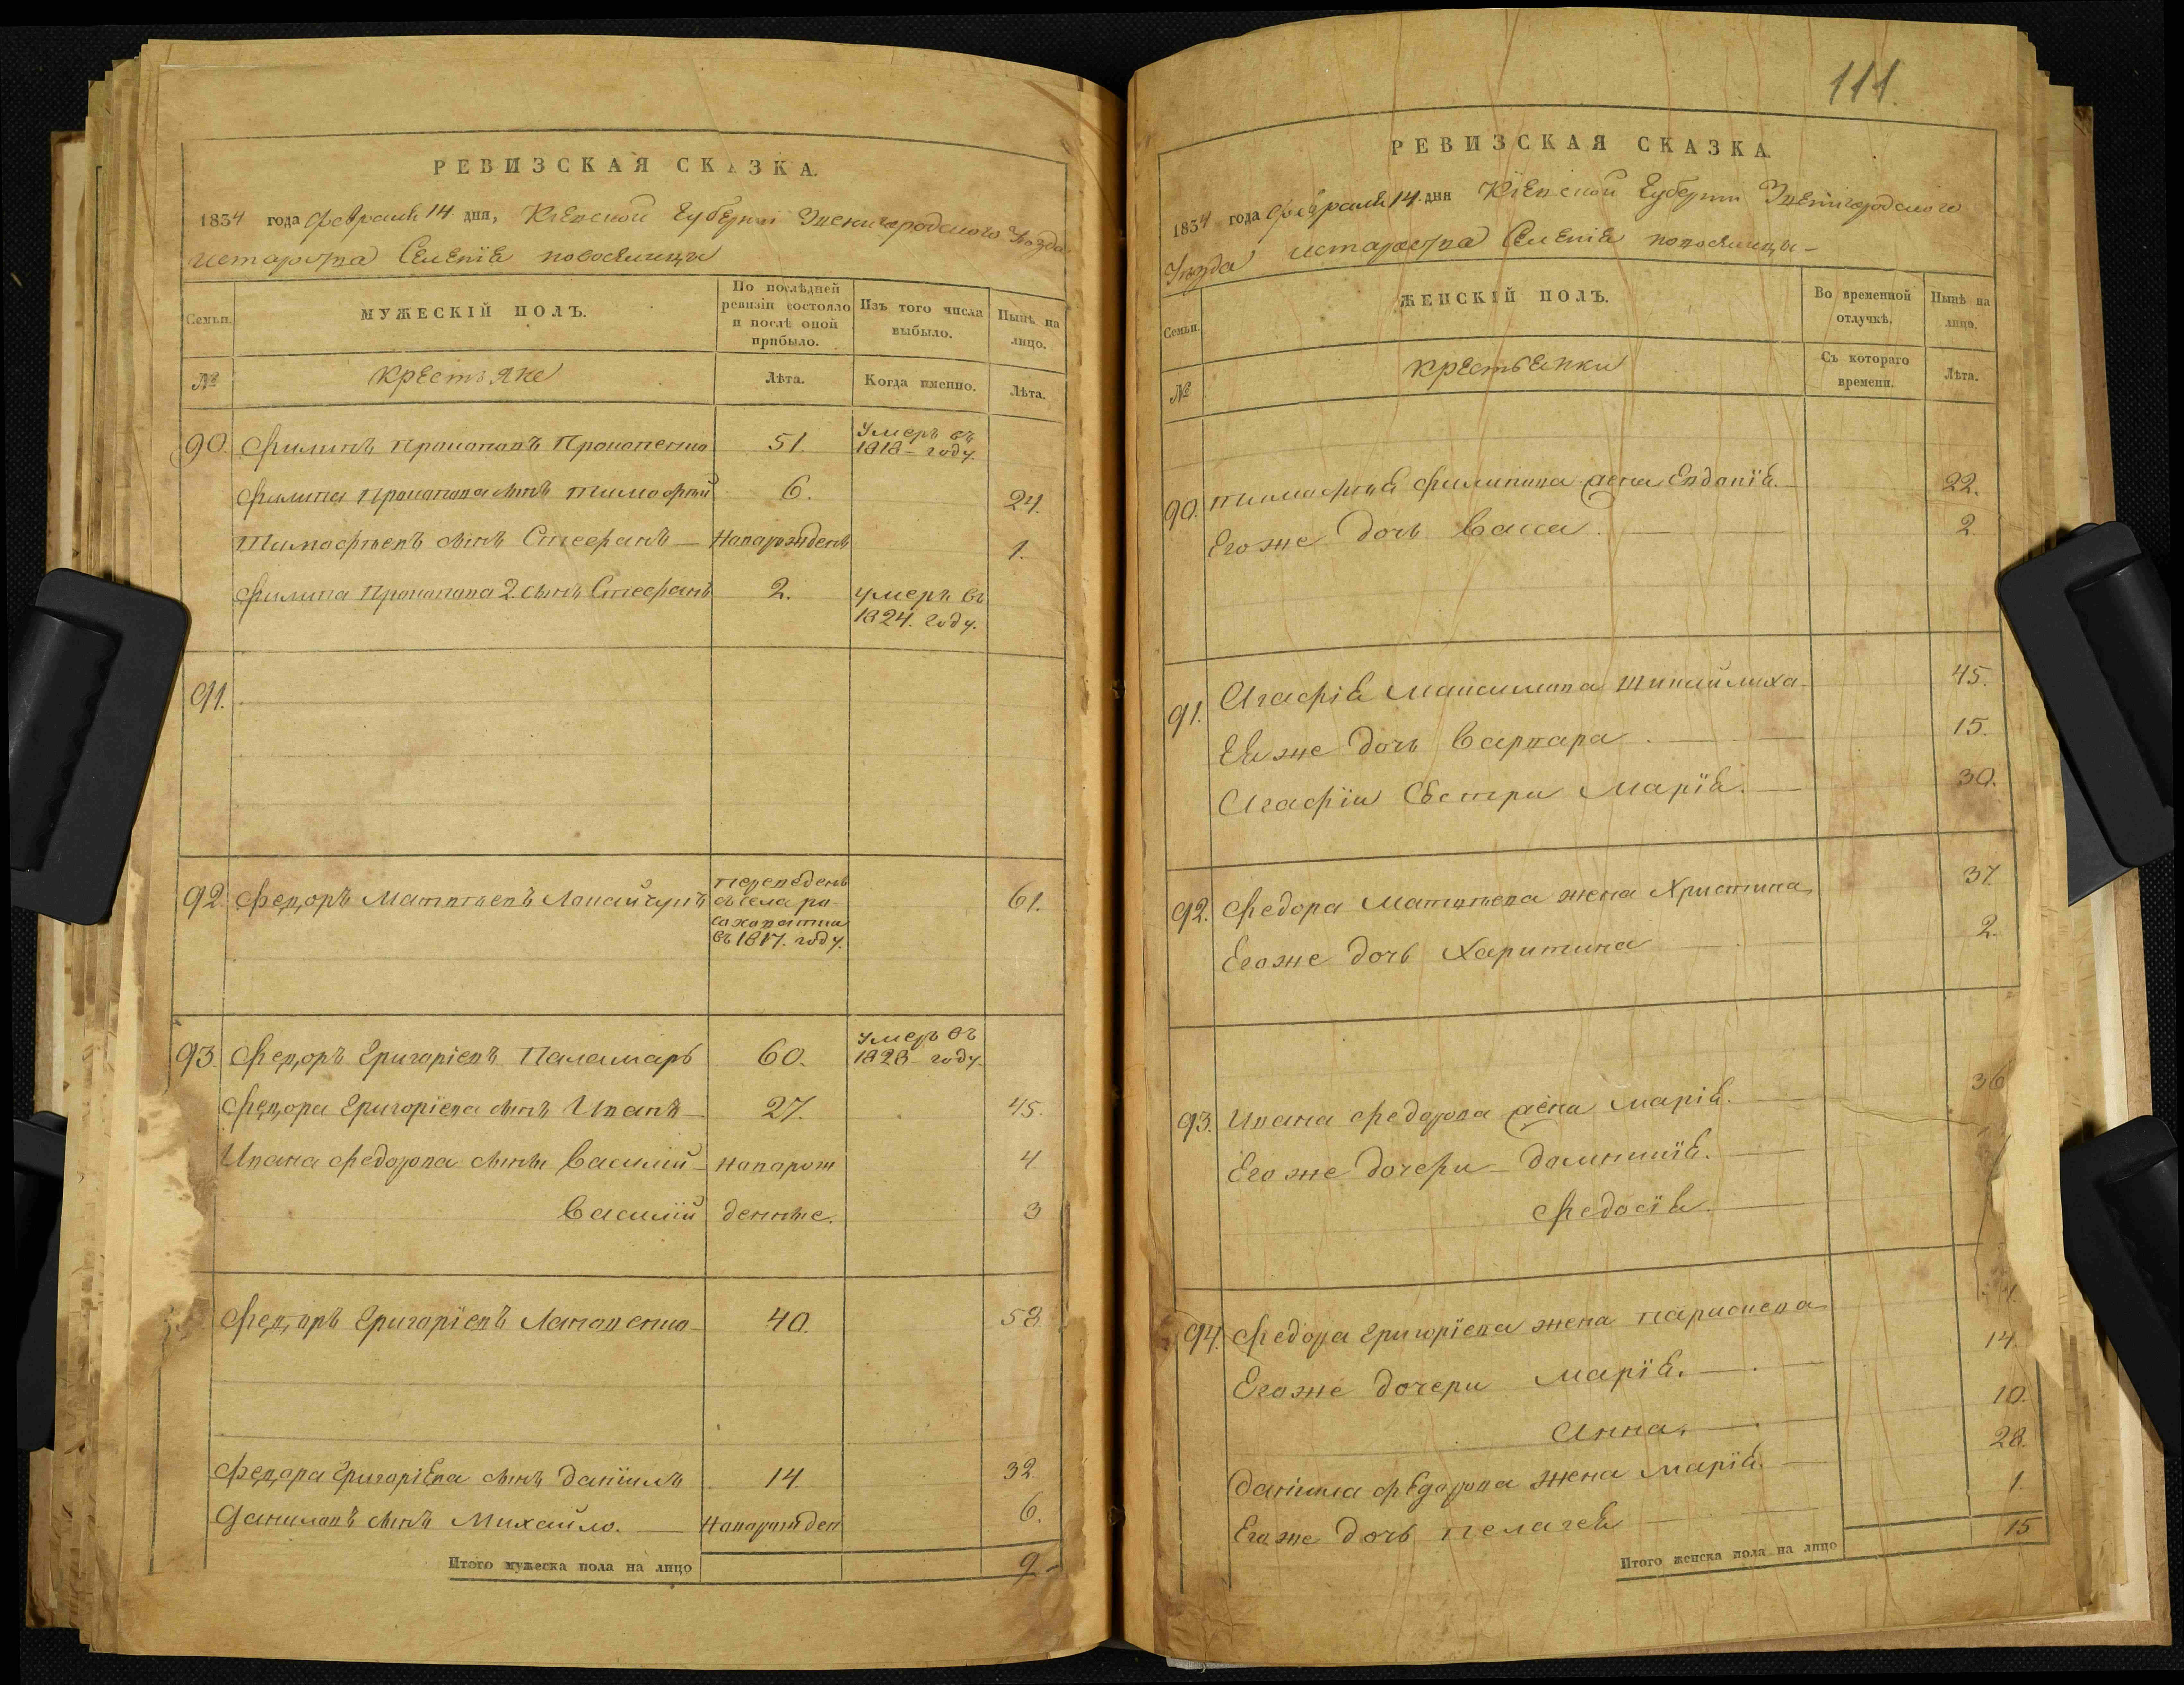 РЕВИЗСКАЯ СКАЗКА.
1834 года февраля 14 дня, Кіевской Губерніи Звенигородского Уезда
Селенія новоселицы
Семьи.
МУЖЕСКІЙ ПОЛЪ.
По послѣдней ревизіи состояло и послѣ оной прибыло.
Изъ того числа выбыло.
Нынѣ на лицо.
№
крестьяне
Лѣта.
Когда именно.
Лѣта.
90. Филипъ Прокоповъ Прокопенко 51. Умеръ въ 1818 году.
Филипа Прокопова сынъ тимофтей 6. 24.
Тимофтеевъ сынъ Стефанъ — Новорожденъ 1.
Филипа Прокопова 2. сынъ Стефанъ 2. умеръ въ 1824. году.
91.
92. Федоръ Матвѣевъ переведенъ съ села въ 1817. году. 61.
93. Федоръ Григоріевъ Паламарь 60. Умеръ въ 1828 году.
Федора Григоріева сынъ Иванъ 27. 45.
Ивана Федорова сыны Василій — новорож 4
Василій денные. 3
Федоръ Григоріевъ 40. 58.
Федора Григоріева сынъ Даніилъ 14. 32.
Даниловъ сынъ Михайло. — Новорожден 6.
Итого мужеска пола на лицо 9
111.
РЕВИЗСКАЯ СКАЗКА.
1834 года февраля 14 дня Кіевской Губерніи Звенигородского
Уезда Селенія новоселицы
Семьи.
ЖЕНСКІЙ ПОЛЪ.
Во временной отлучкѣ.
Нынѣ на лицо.
№
крестьянки
Съ котораго времени.
Лѣта.
90. тимофтея филипова жена Евдокія 22.
Его же дочь Васса 2.
91. Агафія Максимова 45.
Ея же дочь Варвара 15.
Агафіи Сестри Марія. 30.
92. Федора Матвѣева жена Христина 37.
Его же дочь Харитина 2.
93. Ивана Федорова жена Марія. 36
Его же дочери Домникія.
Федосія.
94. Федора Григоріева жена параскева
Его же дочери Марія. 14.
Анна. 10.
Даніила Федорова жена Марія. 28.
Его же дочь пелагея 1.
Итого женска пола на лицо 15